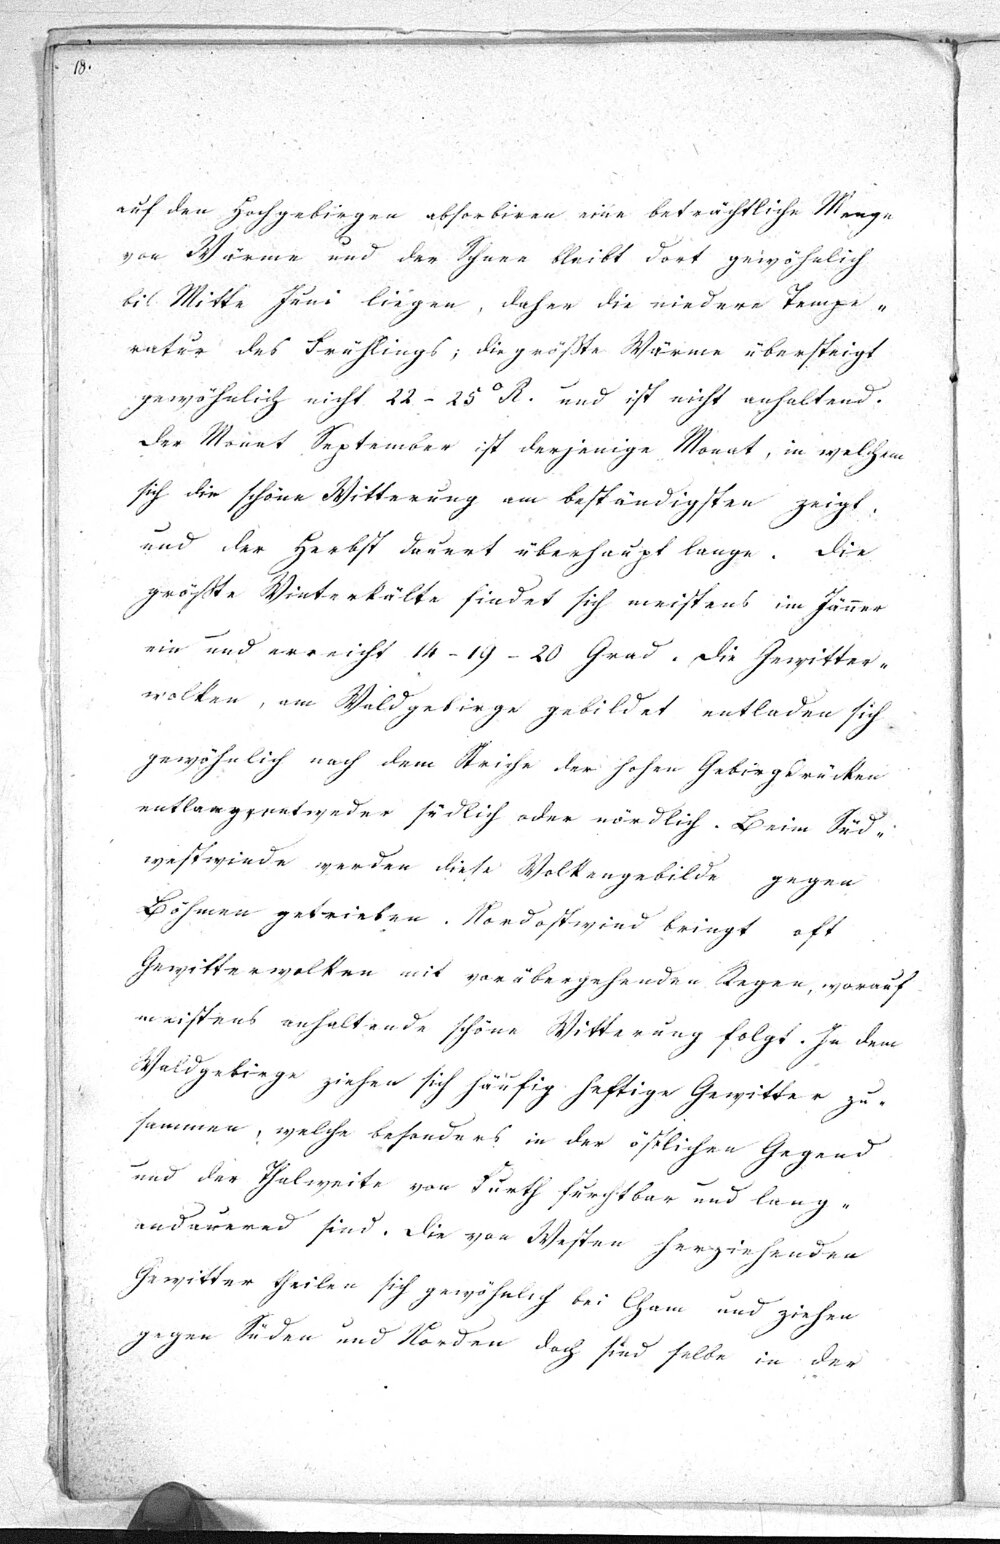 18.
auf den Hochgebirgen absorbiren eine beträchtliche Menge
von Wärme und der Schnee bleibt dort gewöhnlich
bis Mitte Juni liegen, daher die niedere Tempe=
ratur des Frühlings; die größte Wärme übersteigt
gewöhnlich nicht 22 - 25° R. und ist nicht anhaltend.
Der Monat September ist derjenige Monat, in welchem
sich die schöne Witterung am beständigsten zeigt,
und der Herbst dauert überhaupt lange. Die
größte Winterkälte findet sich meistens im Jänner
ein und erreicht 14 - 19 - 20 Grad. Die Gewitter=
wolken, am Waldgebirge gebildet entladen sich
gewöhnlich nach dem Striche der hohen Gebirgsrücken
entlang, entweder südlich oder nördlich. Beim Süd=
westwinde werden diese Wolkengebilde gegen
Böhmen getrieben. Nordostwind bringt oft
Gewitterwolken mit vorübergehenden Regen, worauf
meistens anhaltende schöne Witterung folgt. In dem
Waldgebirge ziehen sich häufig heftige Gewitter zu=
sammen, welche besonders in der östlichen Gegend
und der Thalweite von Furth furchtbar und lang=
andauered sind. Die von Westen herziehenden
Gewitter theilen sich gewöhnlich bei Cham und ziehen
gegen Süden und Norden doch sind selbe in der